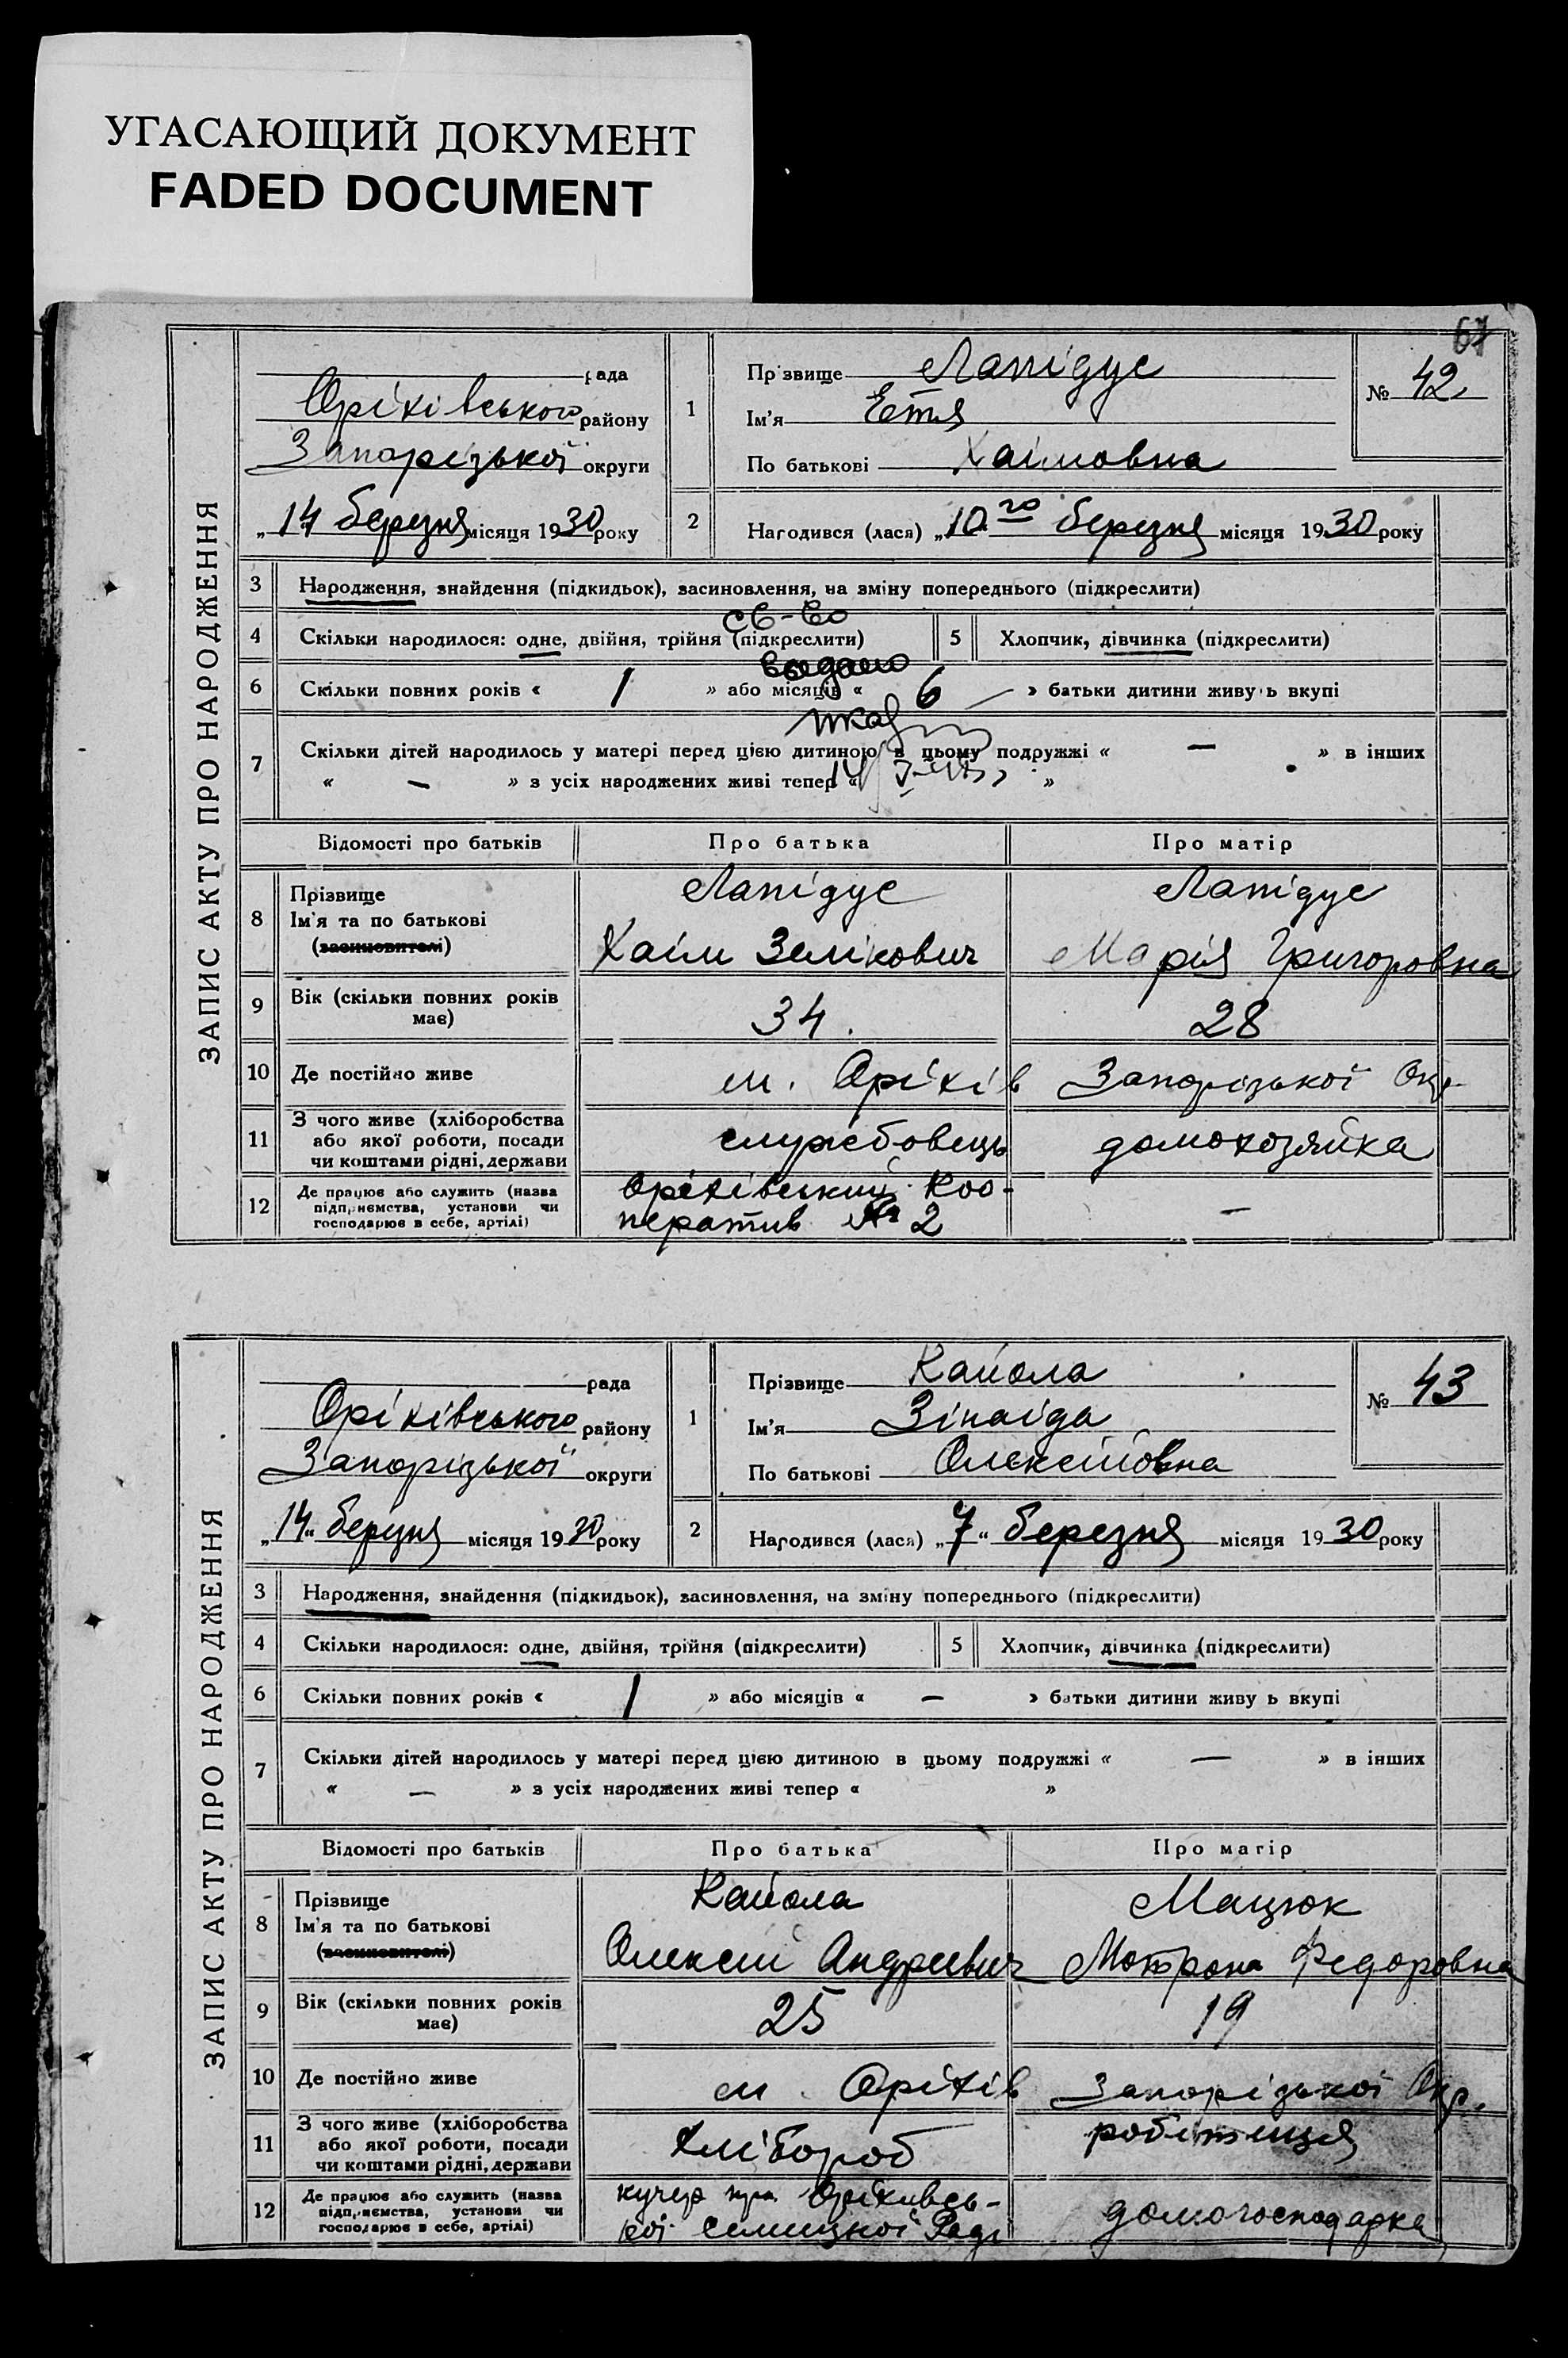 УГАСАЮЩИЙ ДОКУМЕНТ
FADED DOCUMENT
67
ЗАПИС АКТУ ПРО НАРОДЖЕННЯ
рада
Оріхівського району
Запорізької округи
„14 березня місяця 1930 року
1
Прізвище Лапідус
Ім'я Етя
По батькові Хаімовна
№ 42
2 Народився (лася) „10го березня місяця 1930 року
3 Народження, знайдення (підкидьок), засиновлення, на зміну попереднього (підкреслити)
св-во
4 Скільки народилося: одне, двійня, трійня (підкреслити) 5 Хлопчик, дівчинка (підкреслити)
выдано
6 Скільки повних років « 1 » або місяців « 6 — » батьки дитини живуть вкупі
7 Скільки дітей народилось у матері перед цією дитиною в цьому подружжі « — » в інших
« — » з усіх народжених живі тепер « »
Відомості про батьків Про батька Про матір
8 Прізвище
Ім'я та по батькові
(засиновителі)
Лапідус
Хаім Зелікович
Лапідус
Марія Григоровна
9 Вік (скільки повних років має) 34. 28
10 Де постійно живе м. Оріхів Запорізької Окр
11 З чого живе (хліборобства
або якої роботи, посади
чи коштами рідні, держави
службовець домохозяйка
12 Де працює або служить (назва
підприємства, установи чи
господарює в себе, артілі)
Оріхівський Коо-
ператив № 2
—
ЗАПИС АКТУ ПРО НАРОДЖЕННЯ
рада
Оріхівського району
Запорізької округи
„14“ березня місяця 1930 року
1
Прізвище Кайола
Ім'я Зінаіда
По батькові Олексіїовна
№ 43
2 Народився (лася) „7“ березня місяця 1930 року
3 Народження, знайдення (підкидьок), засиновлення, на зміну попереднього (підкреслити)
4 Скільки народилося: одне, двійня, трійня (підкреслити) 5 Хлопчик, дівчинка (підкреслити)
6 Скільки повних років « 1 » або місяців « — » батьки дитини живу ь вкупі
7 Скільки дітей народилось у матері перед цією дитиною в цьому подружжі « — » в інших
« — » з усіх народжених живі тепер « »
Відомості про батьків Про батька Про матір
8 Прізвище
Ім'я та по батькові
(засиновителі)
Кайола
Олексій Андреевич
Мацюк
Мотрона Федоровна
9 Вік (скільки повних років має) 25 19
10 Де постійно живе м. Оріхів Запорізької Окр.
11 З чого живе (хліборобства
або якої роботи, посади
чи коштами рідні, держави
Хлібороб робітниця
12 Де працює або служить (назва
підприємства, установи чи
господарює в себе, артілі)
кучер при Оріхивсь-
кої селищної Раді
домогосподарка